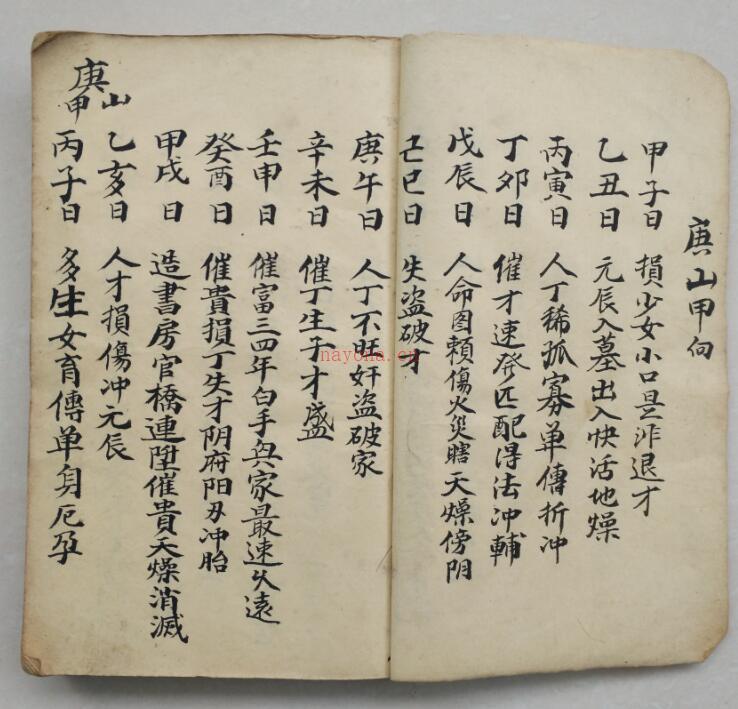 庚山甲向
甲子日 損少女小口是非退才
乙丑日 元辰入墓出入快活地燥
丙寅日 人丁稀孤寡单傳折冲
丁卯日 催才速発匹配得法冲輔
戊辰日 人命图頼傷火災瞎天燥傍阴
己巳日 失盗破才
庚午日 人丁不旺奸盗破家
辛未日 催丁生子才盛
壬申日 催富三四年白手興家最速久遠
癸酉日 催貴損丁失才阴府阳刃冲胎
甲戌日 造書房官橋連陞催貴天燥消滅
乙亥日 人才損傷冲元辰
丙子日 多生女育傳单身厄孕
庚山
甲
nayona.cn